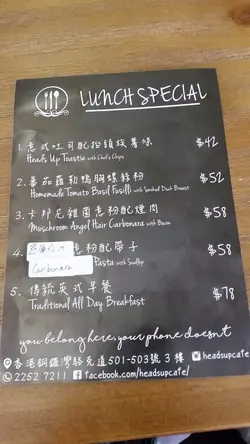 LUNCH SPECIAL
1. 意式吐司配抬頭族薯條 $42
Heads Up Toastie with Chef's Chips
2. 番茄羅勒鴨胸螺絲粉 $52
Homemade Tomato Basil Fusilli with Smoked Duck Breast
3. 卡邦尼雜菌意粉配煙肉 $58
Muschroom Angel Hair Carbonara with Bacon
4. 意粉配帶子 $58
Carbonara Pasta with Scallop
5. 傳統英式早餐 $78
Traditional All Day Breakfast
you belong here, your phone doesnt
香港銅鑼灣駱克道501-503號 3 樓 headsupcafe
2252 7211 facebook.com/headsupcafe/